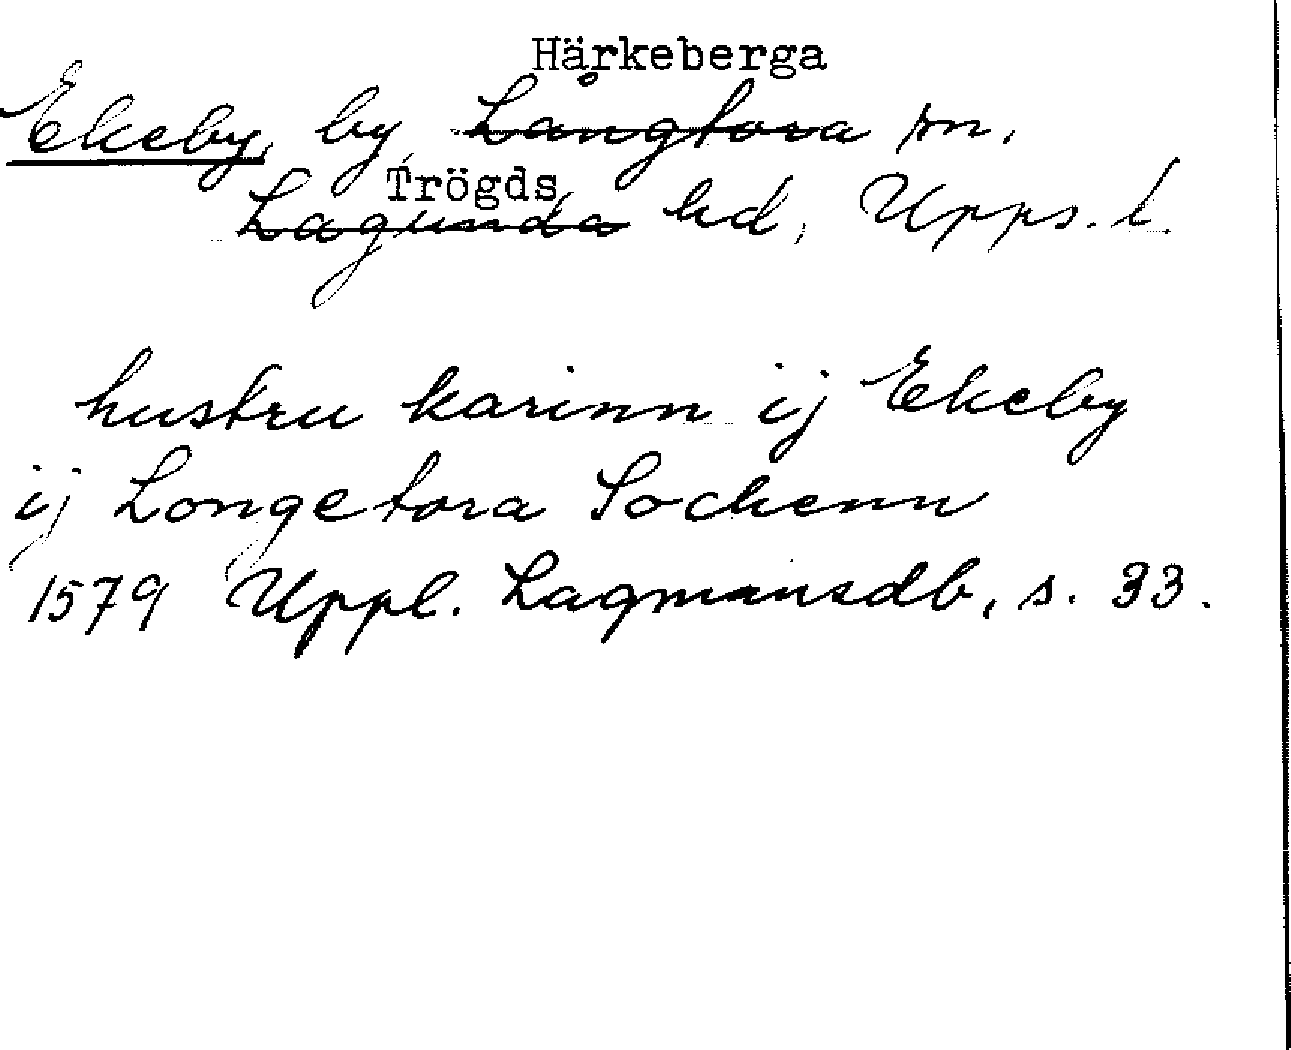 Härkeberga
Ekeby, by, Långtora sn.
Trögds
Lagunda hd, Upps. l.
hustru karinn ij Ekeby
ij Longetora Sockenn
1579 Uppl. Lagmansdb, s. 33.